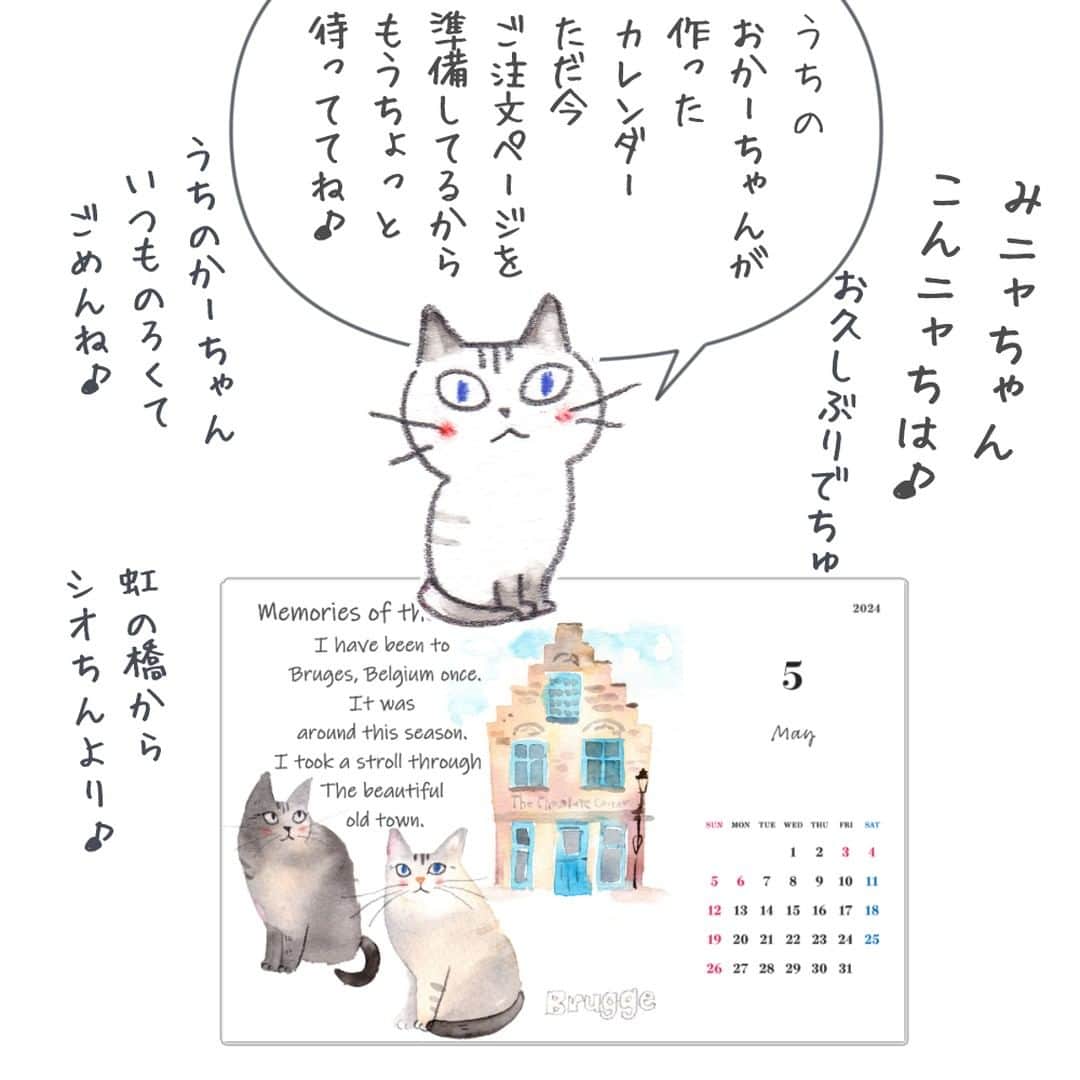 みニャちゃん
こんニャちは♪
お久しぶりでちゅ
うちの
おかーちゃんが
作った
カレンダー
ただ今
ご注文ページを
準備してるから
もうちょっと
待っててね♪
うちのかーちゃん
いつものろくて
ごめんね♪
虹の橋から
シオちんより♪
Memories of th
I have been to
Bruges, Belgium once.
It was
around this season.
I took a stroll through
The beautiful
old town.
The Chocolate Corner
Brugge
2024
5
May
SUN MON TUE WED THU FRI SAT
1 2 3 4
5 6 7 8 9 10 11
12 13 14 15 16 17 18
19 20 21 22 23 24 25
26 27 28 29 30 31